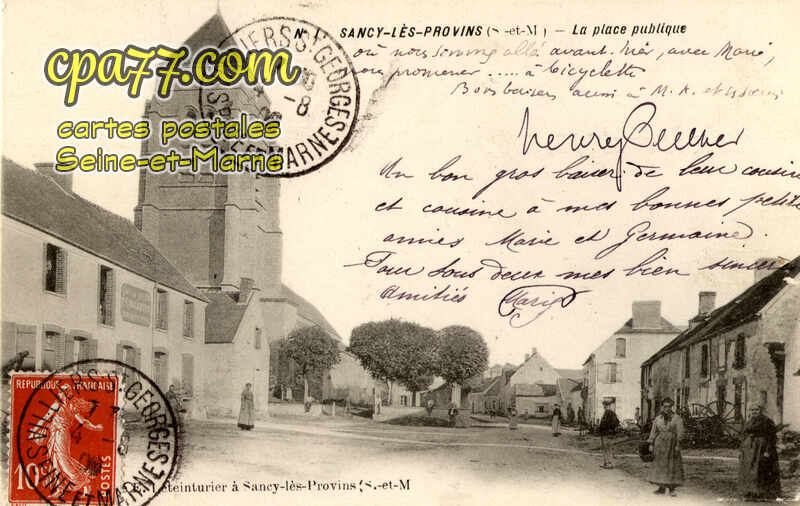 SANCY-LÈS-PROVINS (S.-et-M.) — La place publique
où nous sommes allé avant-hier, avec Marie,
promener ..... à bicyclette
Bons baisers aussi à M. A. et
cpa77.com
cartes postales
Seine-et-Marne
VILLIERS ST GEORGES
SEINE-ET-MARNE
Henry
Un bon gros baiser de leur cousin
et cousine à mes bonnes petites
amies Marie et Germaine.
Pour tous deux mes bien sincères
amitiés Marie
REPUBLIQUE FRANÇAISE
10
POSTES
VILLIERS ST GEORGES
SEINE-ET-MARNE
à Sancy-lès-Provins (S.-et-M